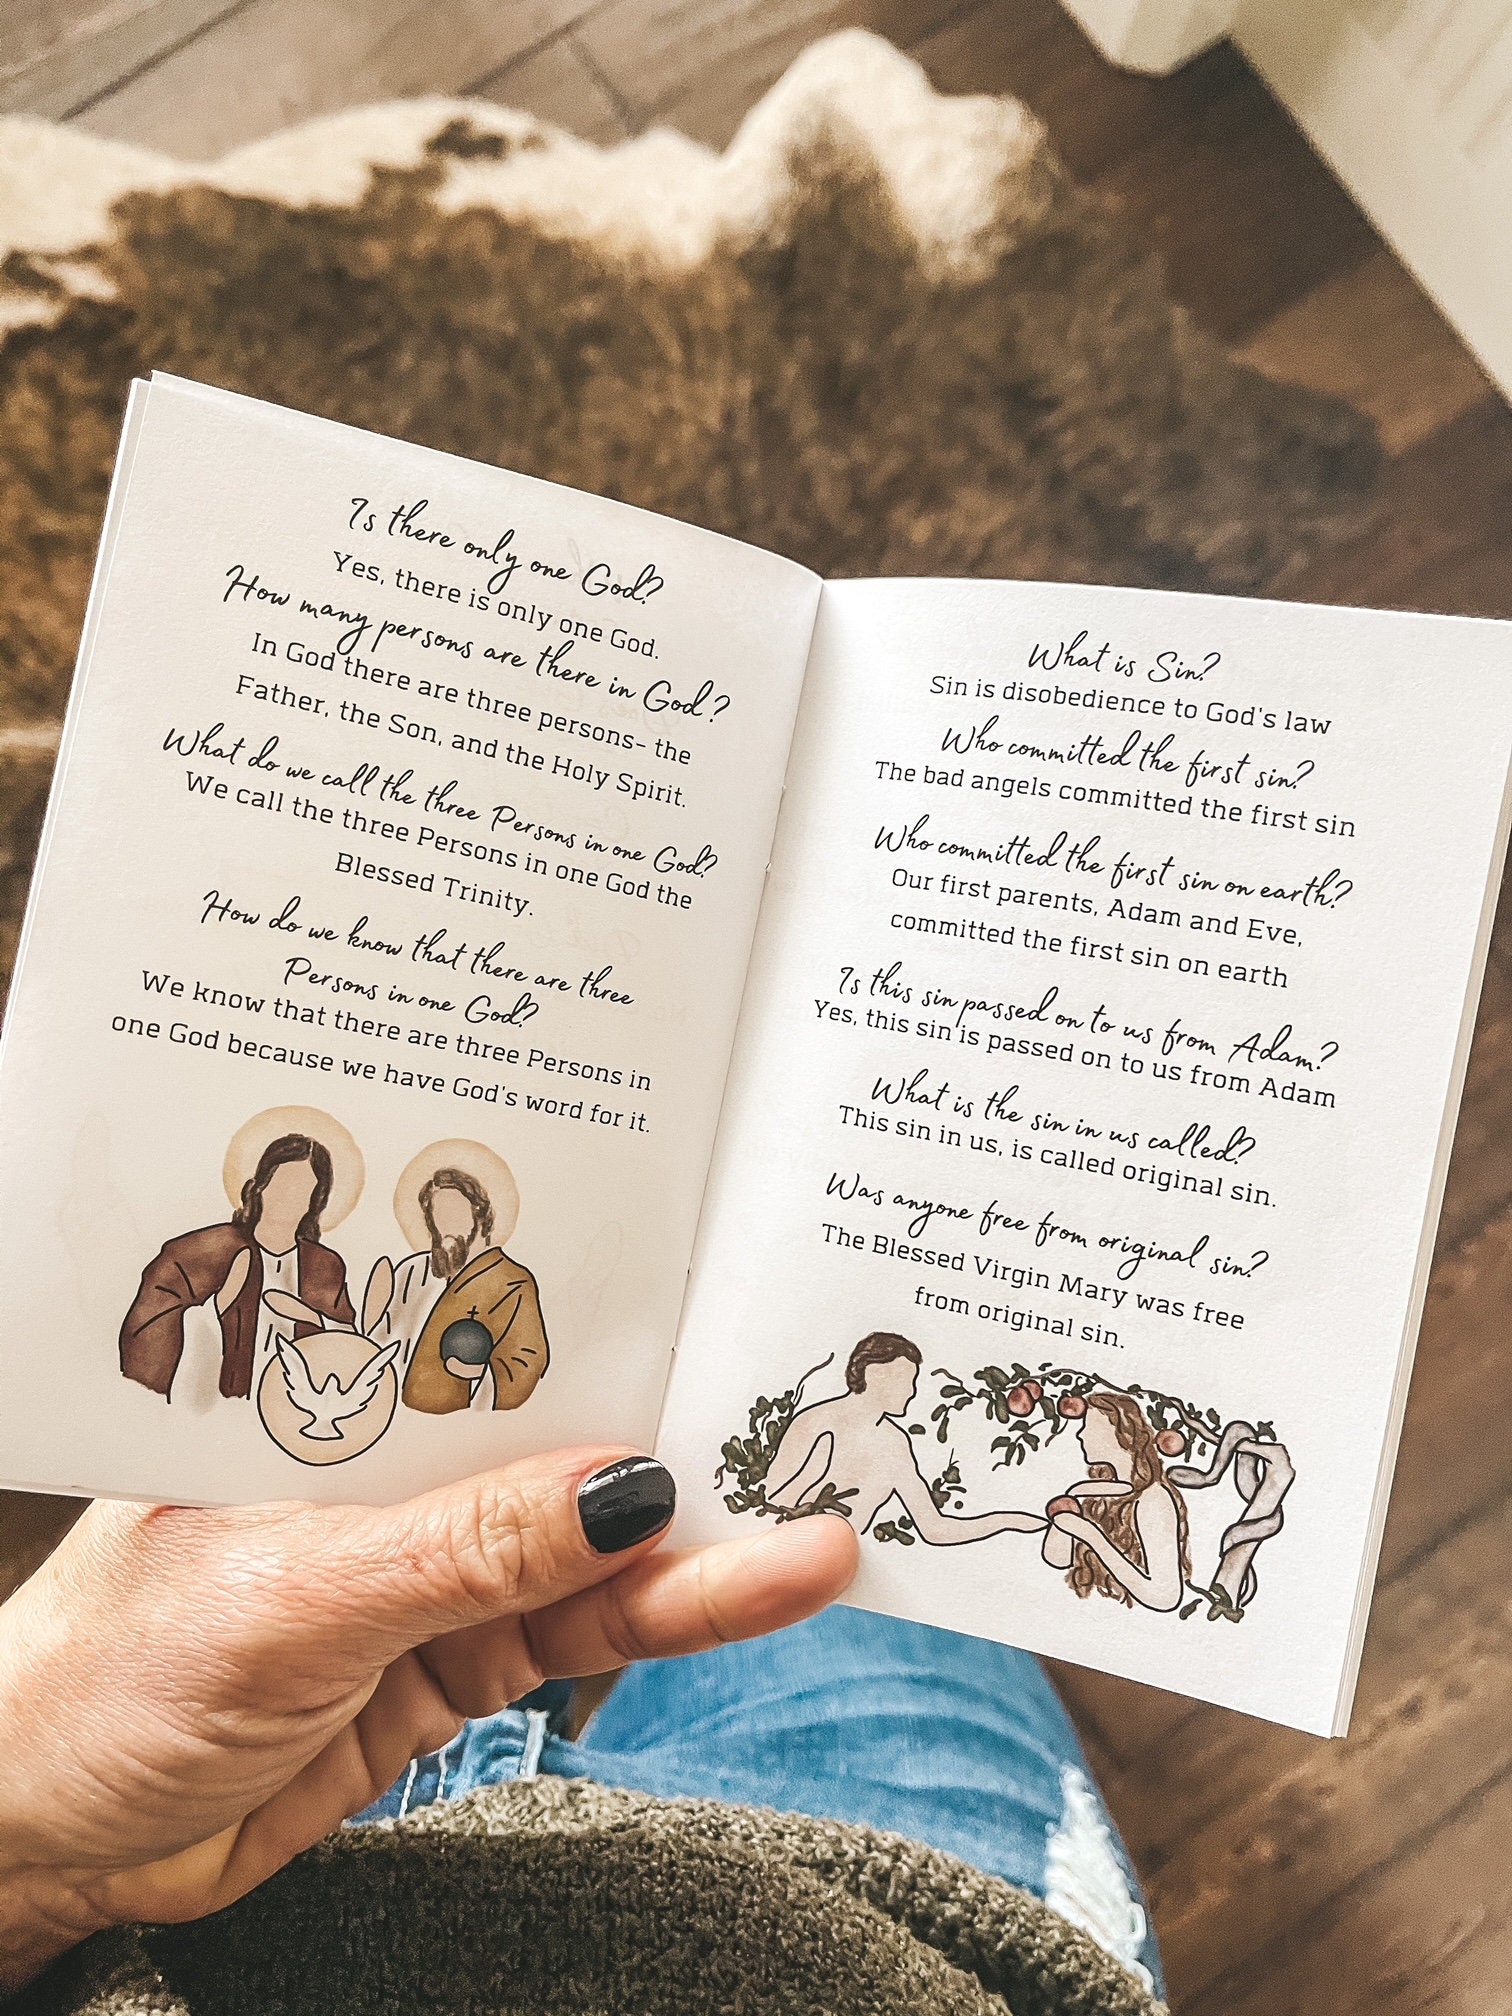 Is there only one God?
Yes, there is only one God.
How many persons are there in God?
In God there are three persons- the
Father, the Son, and the Holy Spirit.
What do we call the three Persons in one God?
We call the three Persons in one God the
Blessed Trinity.
How do we know that there are three
Persons in one God?
We know that there are three Persons in
one God because we have God's word for it.
What is Sin?
Sin is disobedience to God's law
Who committed the first sin?
The bad angels committed the first sin
Who committed the first sin on earth?
Our first parents, Adam and Eve,
committed the first sin on earth
Is this sin passed on to us from Adam?
Yes, this sin is passed on to us from Adam
What is the sin in us called?
This sin in us, is called original sin.
Was anyone free from original sin?
The Blessed Virgin Mary was free
from original sin.